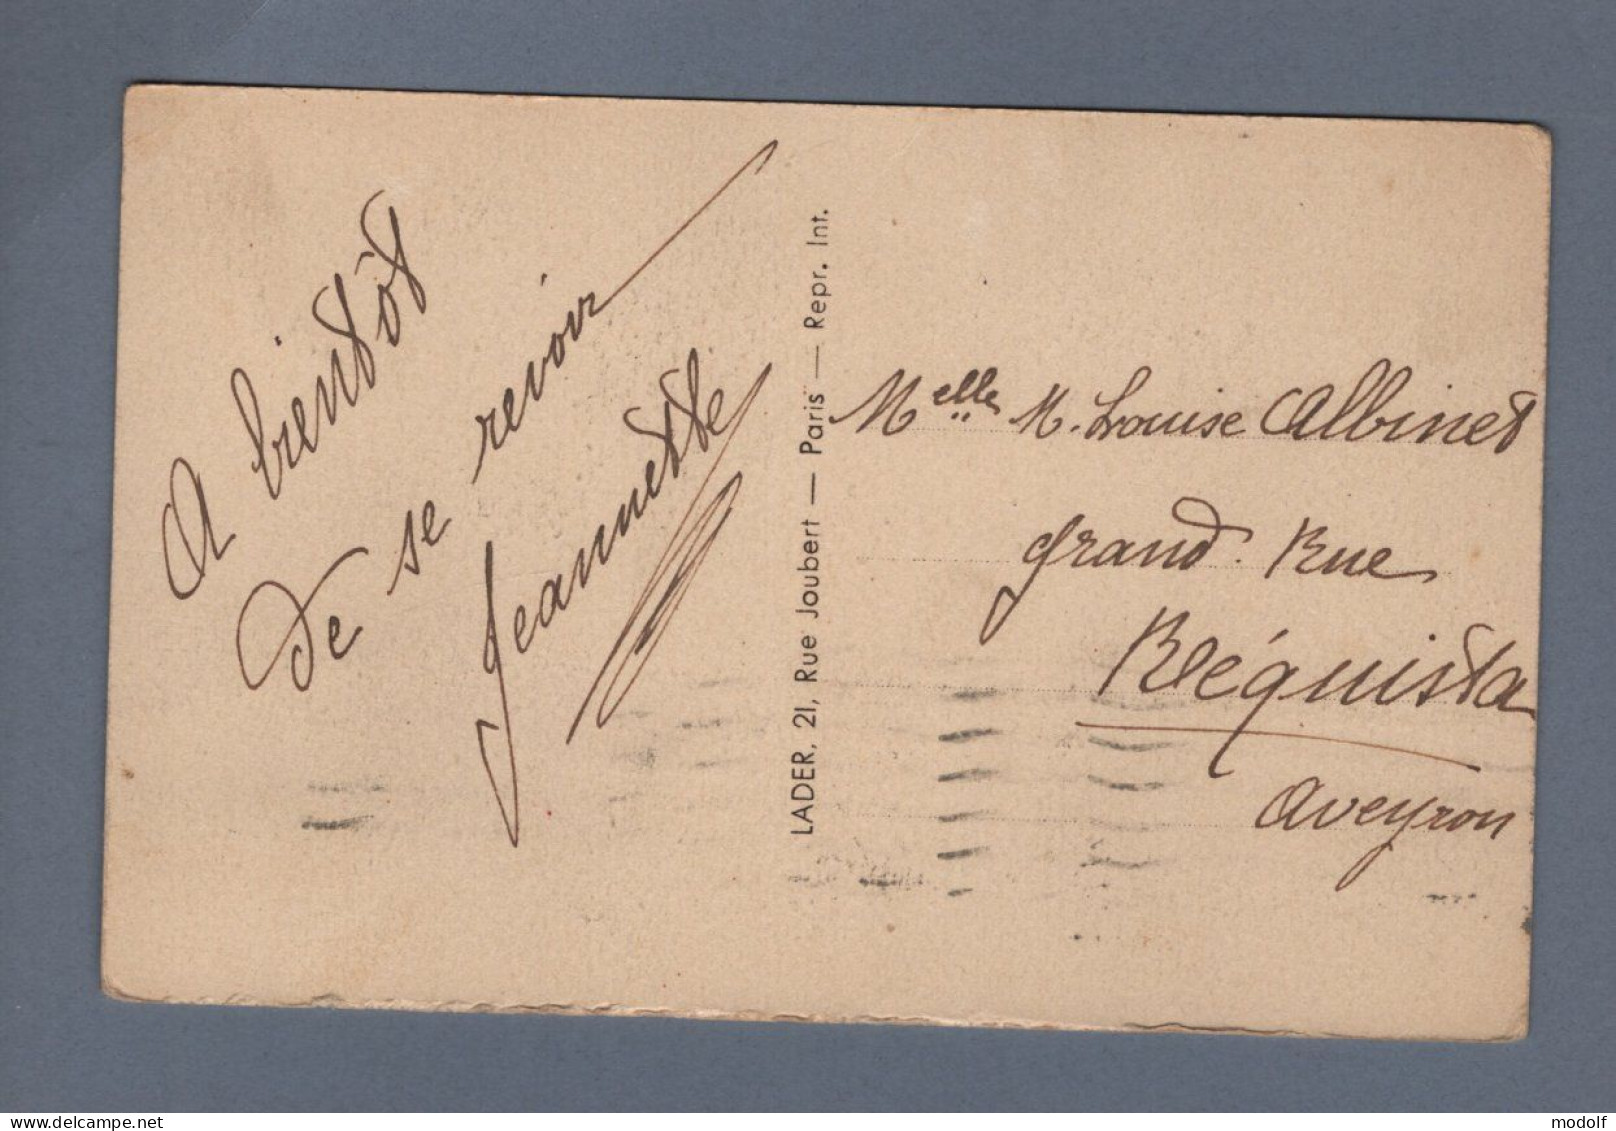 A bientôt
de se revoir
Jeannette
LADER, 21, Rue Joubert — Paris — Repr. Int.
Melle M. Louise Albinet
grand. Rue
Réquista
Aveyron
delcampe.net
modolf